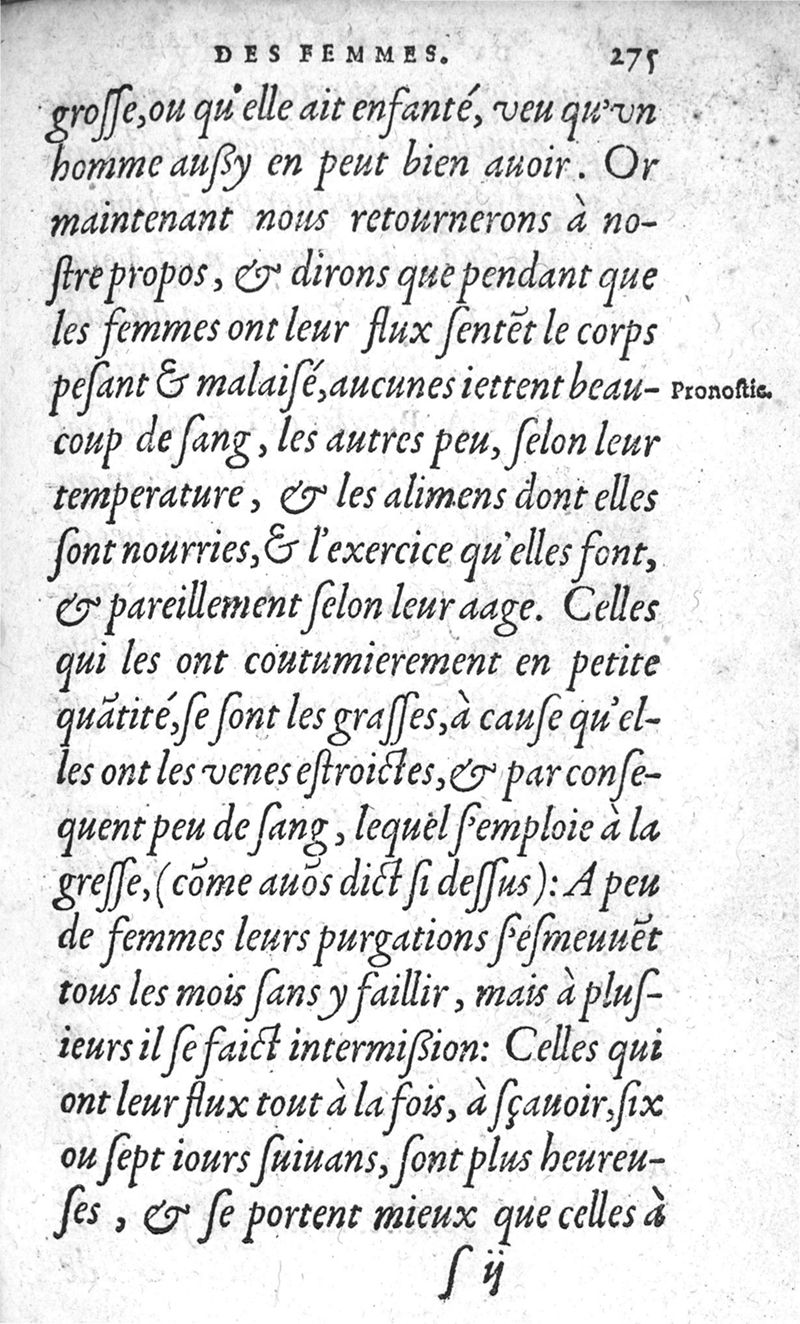 DES FEMMES. 275
groſſe, ou qu'elle ait enfanté, veu qu'vn
homme außy en peut bien auoir. Or
maintenant nous retournerons à no-
ſtre propos, & dirons que pendant que
les femmes ont leur flux ſentẽt le corps
peſant & malaiſé, aucunes iettent beau-
Pronoſtic.
coup de ſang, les autres peu, ſelon leur
temperature, & les alimens dont elles
ſont nourries, & l'exercice qu'elles font,
& pareillement ſelon leur aage. Celles
qui les ont coutumierement en petite
quãtité, ſe ſont les graſſes, à cauſe qu'el-
les ont les venes eſtroictes, & par conſe-
quent peu de ſang, lequel ſ'emploie à la
greſſe, (cõme auõs dict ſi deſſus): A peu
de femmes leurs purgations ſ'eſmeuuẽt
tous les mois ſans y faillir, mais à pluſ-
ieurs il ſe faict intermißion: Celles qui
ont leur flux tout à la fois, à ſçauoir, ſix
ou ſept iours ſuiuans, ſont plus heureu-
ſes, & ſe portent mieux que celles à
ſ ij